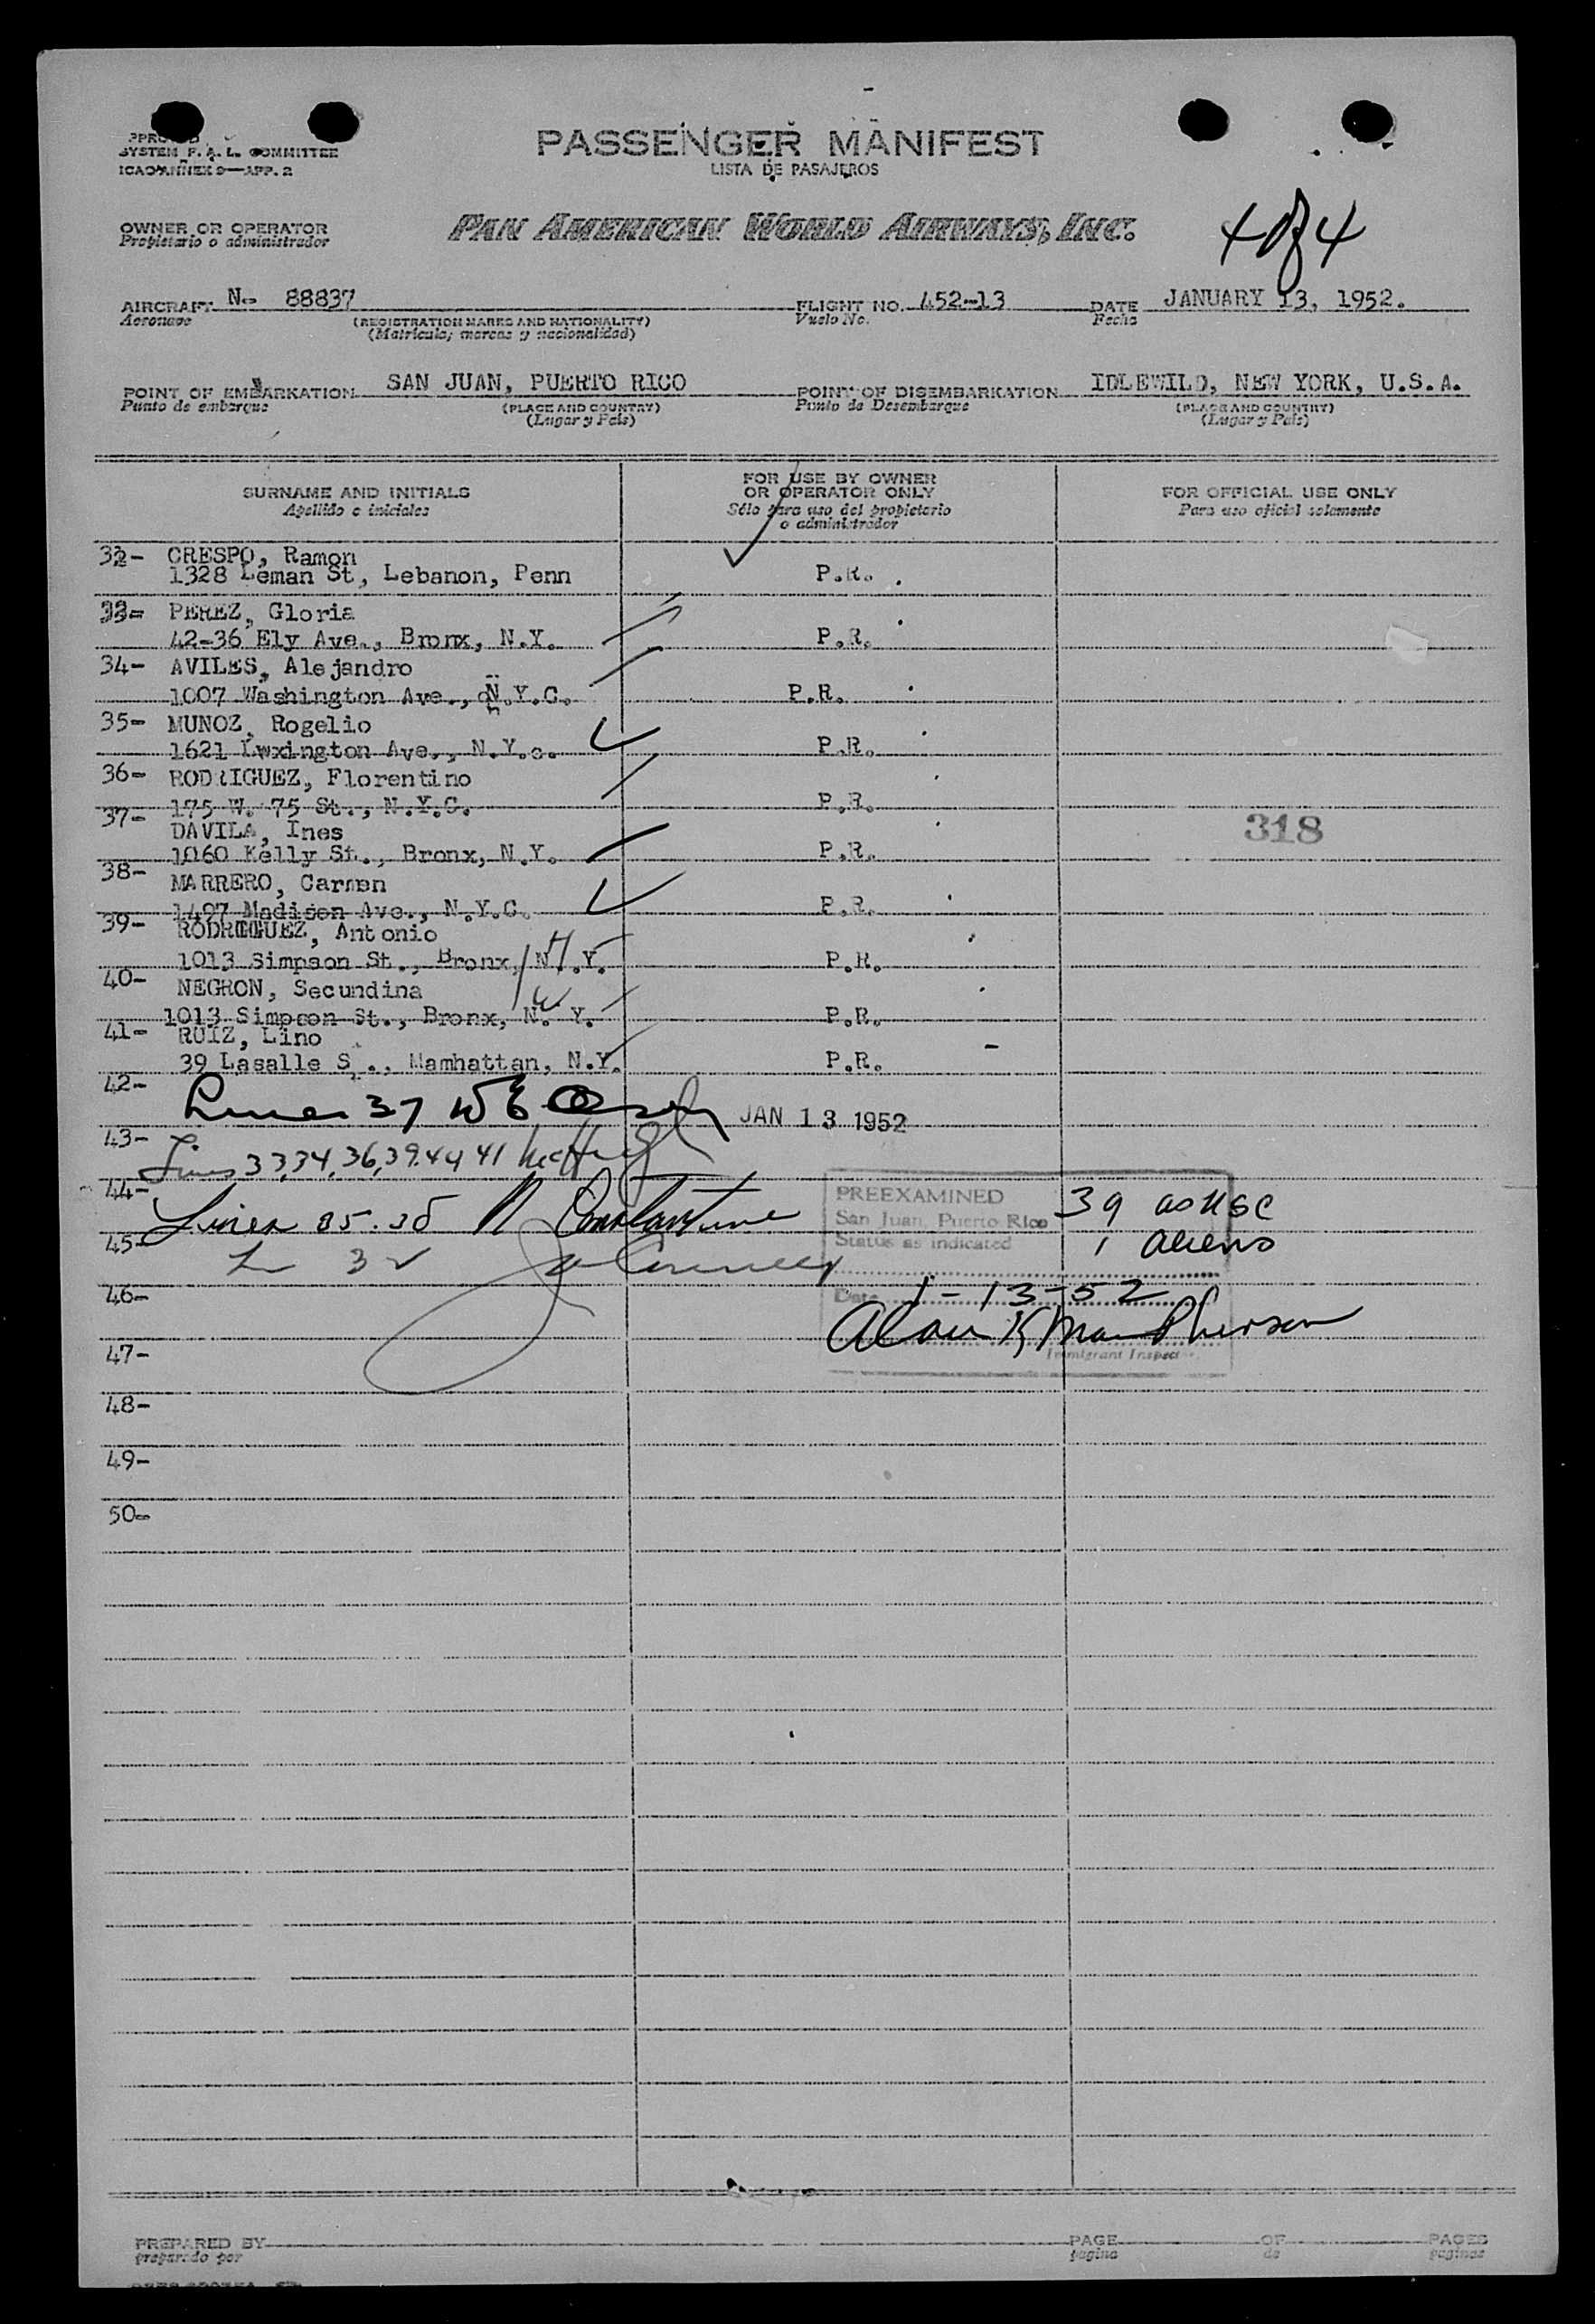 SYSTEM F. A. L. COMMITTEE
ICAO ANNEX 9—APP. 2
PASSENGER MANIFEST
LISTA DE PASAJEROS
OWNER OR OPERATOR
Propietario o administrador
PAN AMERICAN WORLD AIRWAYS, INC.
4 of 4
AIRCRAFT N- 88837 FLIGHT NO. 452-13 DATE JANUARY 13, 1952.
Aeronave (REGISTRATION MARKS AND NATIONALITY) Vuelo No. Fecha
(Matricula; marcas y nacionalidad)
POINT OF EMBARKATION SAN JUAN, PUERTO RICO POINT OF DISEMBARKATION IDLEWILD, NEW YORK, U.S.A.
Punto de embarque (PLACE AND COUNTRY) Punto de Desembarque (PLACE AND COUNTRY)
(Lugar y País) (Lugar y País)
SURNAME AND INITIALS FOR USE BY OWNER OR OPERATOR ONLY FOR OFFICIAL USE ONLY
Apellido e iniciales Sólo para uso del propietario o administrador Para uso oficial solamente
32- CRESPO, Ramon
1328 Leman St, Lebanon, Penn P.R.
33- PEREZ, Gloria
42-36 Ely Ave., Bronx, N.Y. P.R.
34- AVILES, Alejandro
1007 Washington Ave., N.Y.C. P.R.
35- MUNOZ, Rogelio
1621 Lwxington Ave., N.Y.c. P.R.
36- RODRIGUEZ, Florentino
175 W. 75 St., N.Y.C. P.R.
37- DAVILA, Ines
318
1060 Kelly St., Bronx, N.Y. P.R.
38- MARRERO, Carmen
1497 Madison Ave., N.Y.C. P.R.
39- RODRIGUEZ, Antonio
1013 Simpson St., Bronx, N.Y. P.R.
40- NEGRON, Secundina
1013 Simpson St., Bronx, N. Y. P.R.
41- RUIZ, Lino
39 Lasalle S ., Mamhattan, N.Y. P.R.
42-
37 JAN 13 1952
43-
Lines 33,34,36,39,40 41
44-
Lines 35.38 N Constantine
PREEXAMINED 39 as USC
San Juan, Puerto Rico
Status as indicated 1 aliens
45-
L 32
46-
Date 1-13-52
Immigrant Inspector
47-
48-
49-
50-
PREPARED BY PAGE OF PAGES
preparado por pagina de paginas